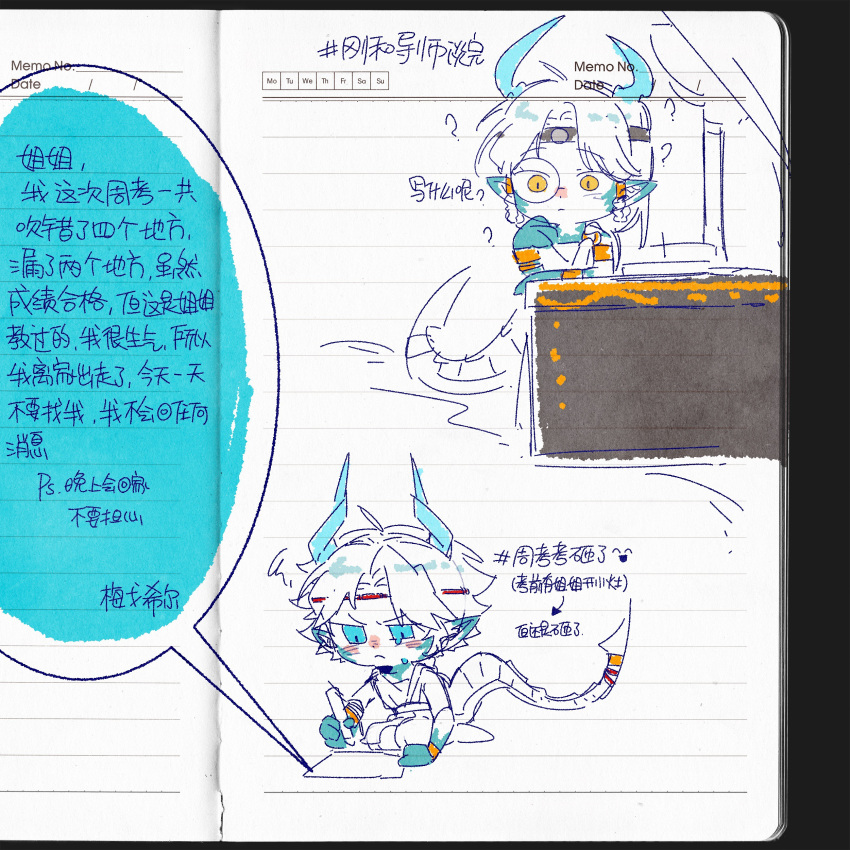 Memo No.
Date / /
姐姐,
我这次周考一共
吹错了四个地方,
漏了两个地方,虽然
成绩合格,但这是姐姐
教过的,我很生气,所以
我离家出走了,今天一天
不要找我,我不会回任何
消息
Ps.晚上会回家
不要担心
梅戈希尔
#刚和导师谈完
Mo Tu We Th Fr Sa Su
Memo No.
Date / /
写什么呢?
? ? ? ?
#周考考砸了
(考前有姐姐开小灶)
但还是砸了.